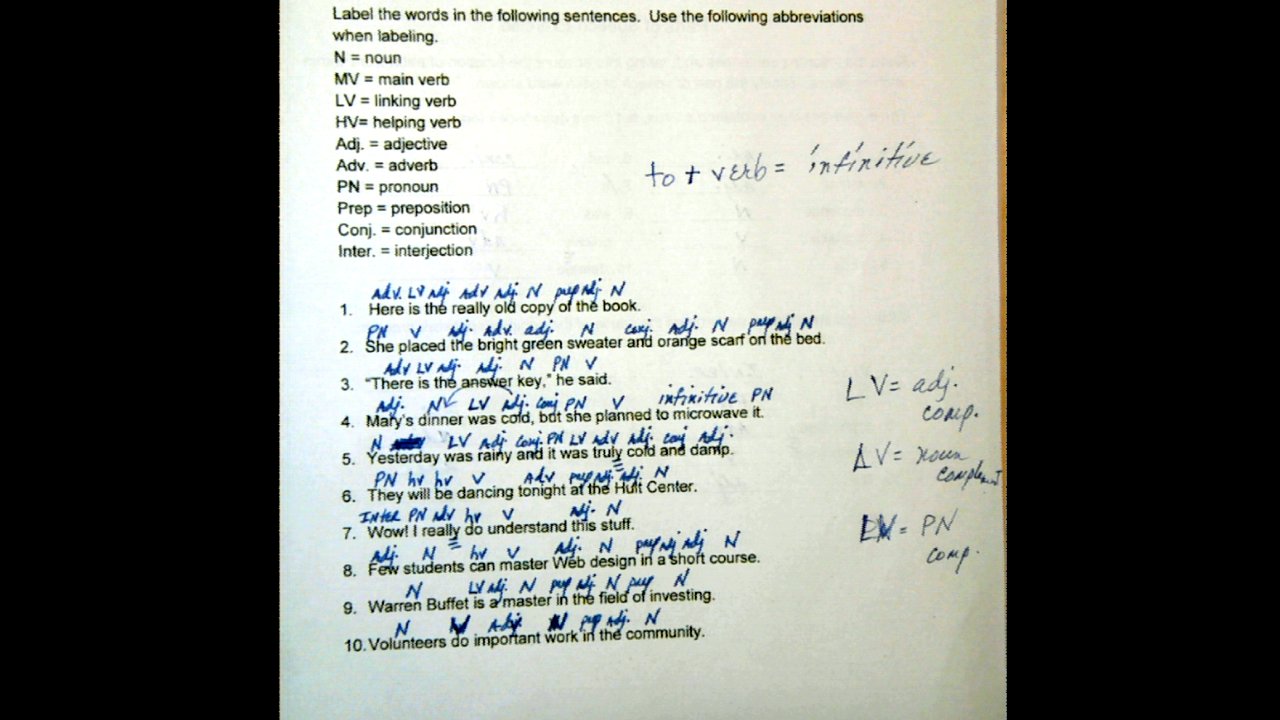 Label the words in the following sentences. Use the following abbreviations
when labeling.
N = noun
MV = main verb
LV = linking verb
HV= helping verb
Adj. = adjective
Adv. = adverb
to + verb = infinitive
PN = pronoun
Prep = preposition
Conj. = conjunction
Inter. = interjection
Adv. LV Adj. Adv Adj. N prep Adj N
1. Here is the really old copy of the book.
PN V Adj. Adv. adj. N conj. Adj. N prep Adj N
2. She placed the bright green sweater and orange scarf on the bed.
Adv LV Adj. Adj. N PN V
3. "There is the answer key," he said.
LV = adj.
comp.
Adj. N LV Adj. Conj PN V infinitive PN
4. Mary's dinner was cold, but she planned to microwave it.
N LV Adj Conj. PN LV Adv Adj. conj Adj.
5. Yesterday was rainy and it was truly cold and damp.
LV = noun
PN hv hv V Adv prep Adj. adj. N
6. They will be dancing tonight at the Hult Center.
Inter PN adv hv V Adj. N
7. Wow! I really do understand this stuff.
LV = PN
comp.
Adj. N hv V Adj. N prep Adj Adj N
8. Few students can master Web design in a short course.
N LV Adj. N prep Adj N prep N
9. Warren Buffet is a master in the field of investing.
N V Adj. N prep Adj. N
10. Volunteers do important work in the community.